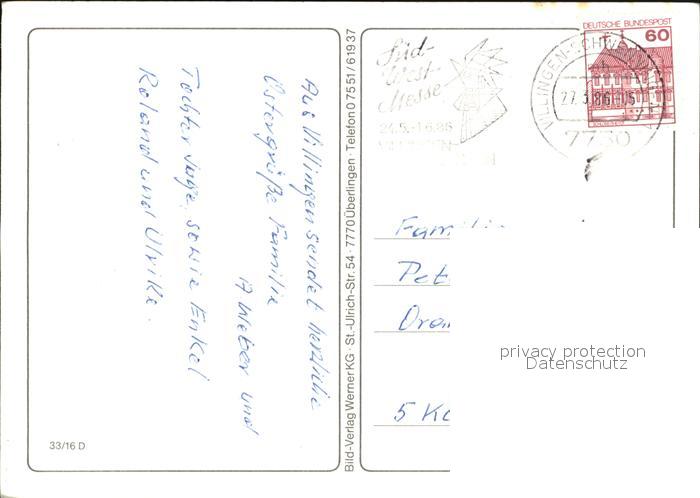 Aus Villingen sendet herzliche
Ostergrüße Familie
und
Tochter Inge, sowie Enkel
Roland und Ulrike.
33/16 D
Bild-Verlag Werner KG · St.-Ulrich-Str. 54 · 7770 Überlingen · Telefon 0 75 51/6 19 37
Süd-
West-
Messe
24.5.-1.6.86
DEUTSCHE BUNDESPOST
60
VILLINGEN-SCHWE
27.3.86-15
7730
Fam
Pet
Ora
5 Kö
privacy protection
Datenschutz